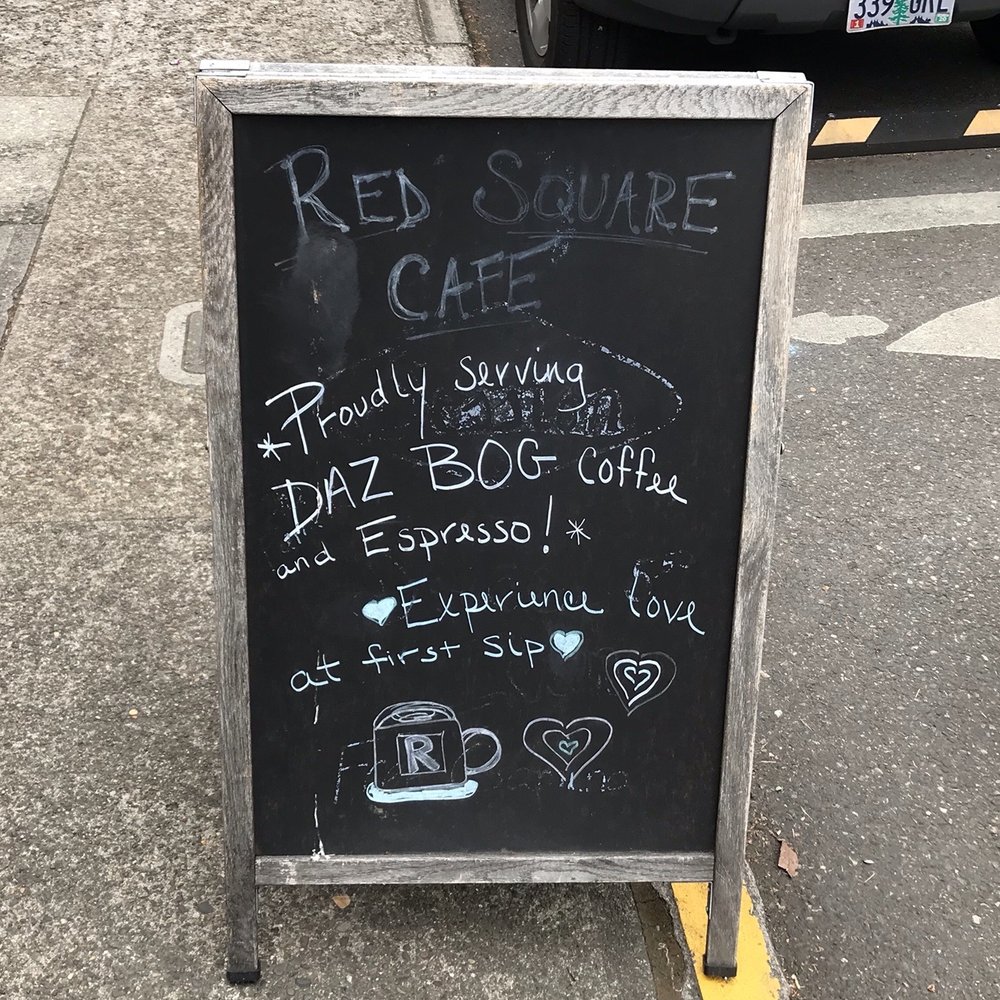 339 GRL
RED SQUARE
CAFE
*Proudly serving
DAZ BOG Coffee
and Espresso!*
Experience love
at first sip
R